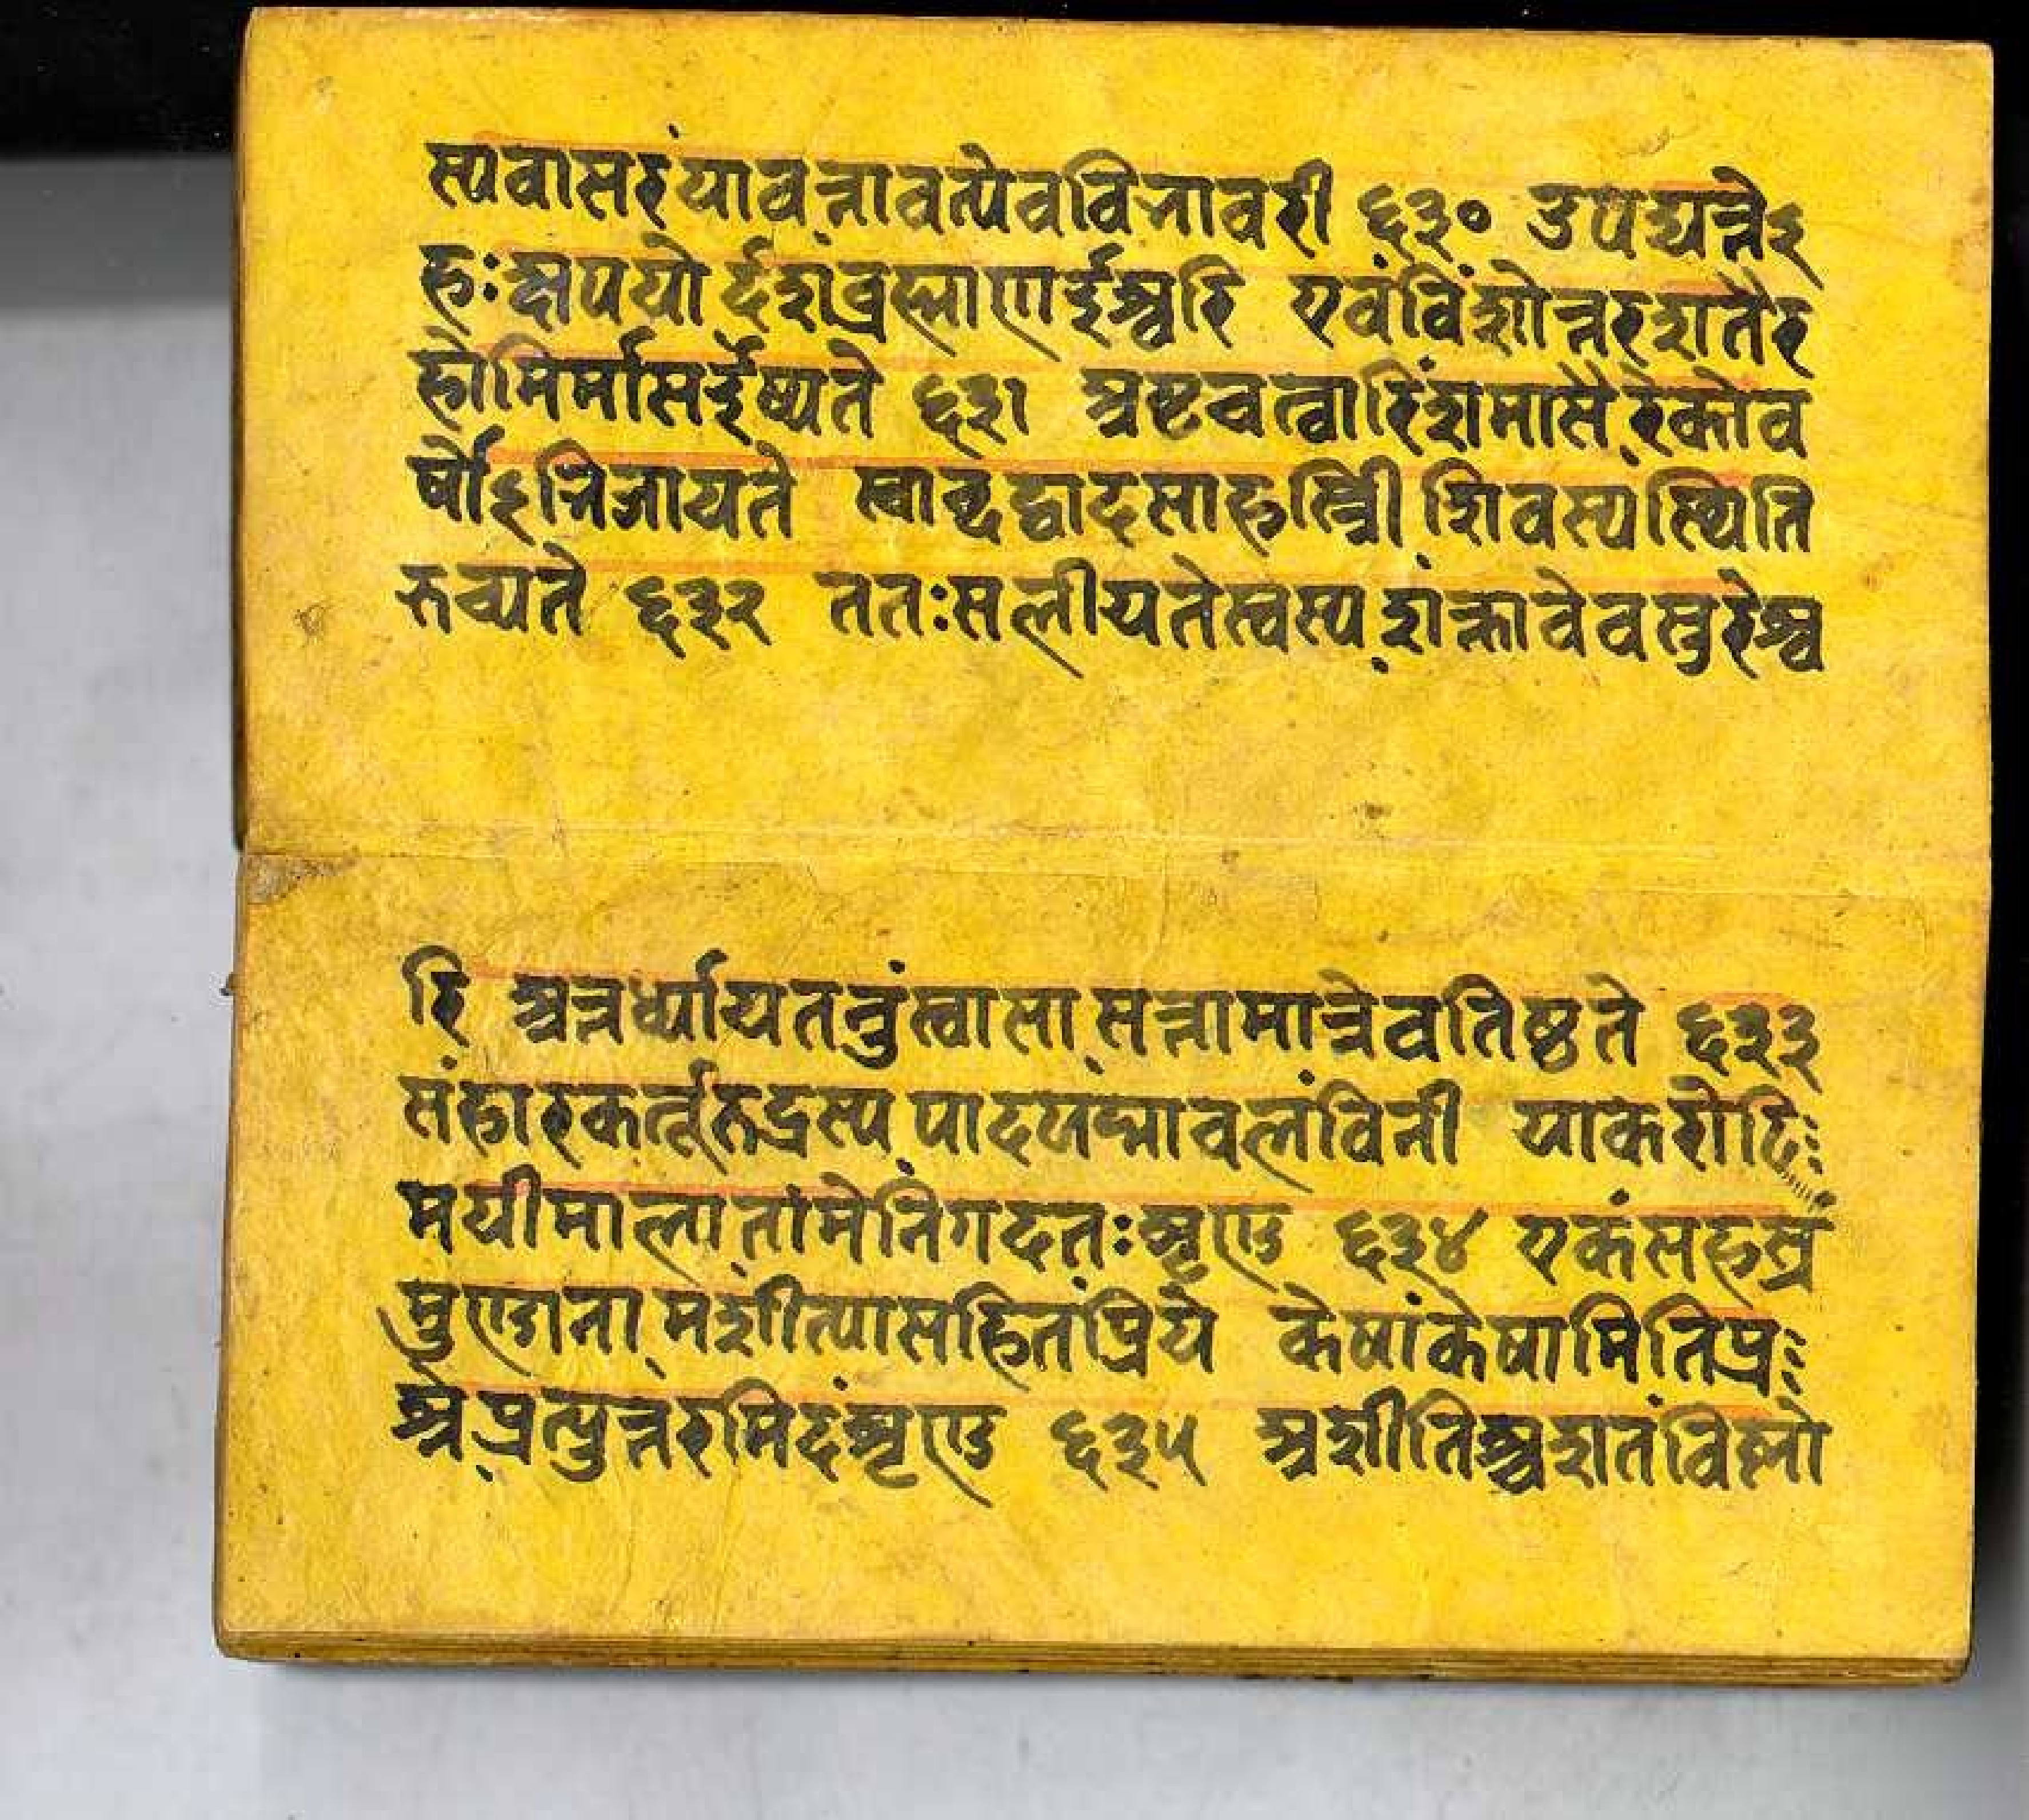 स्यवासरंयावत्तावत्येवविभावरी ६३० उपद्यन्तेऽ
हःक्षपयोर्दशब्रह्माणईश्वरि एवंविंशोत्तरशतैर
होभिर्मासईष्यते ६३१ अष्टचत्वारिंशमासैरेकोव
र्षोऽभिजायते स्वाब्दद्वादसाहस्त्री शिवस्यस्थिति
रुच्यते ६३२ ततःसलीयतेस्वस्य शक्तावेवसुरेश्व
रि अन्तर्ध्यायततनुंस्वासा सत्तामात्रेवतिष्ठते ६३३
संहारकर्तृरुद्रस्य पादपद्मावलंविनी याकरोटि
मयीमाला तांमेनिगदतःशृणु ६३४ एकंसहस्रं
मुण्डाना मशीत्यासहितंप्रिये केषांकेषामितिप्र
श्ने प्रत्युत्तरमिदंशृणु ६३५ अशीतिश्चशतंविष्णो